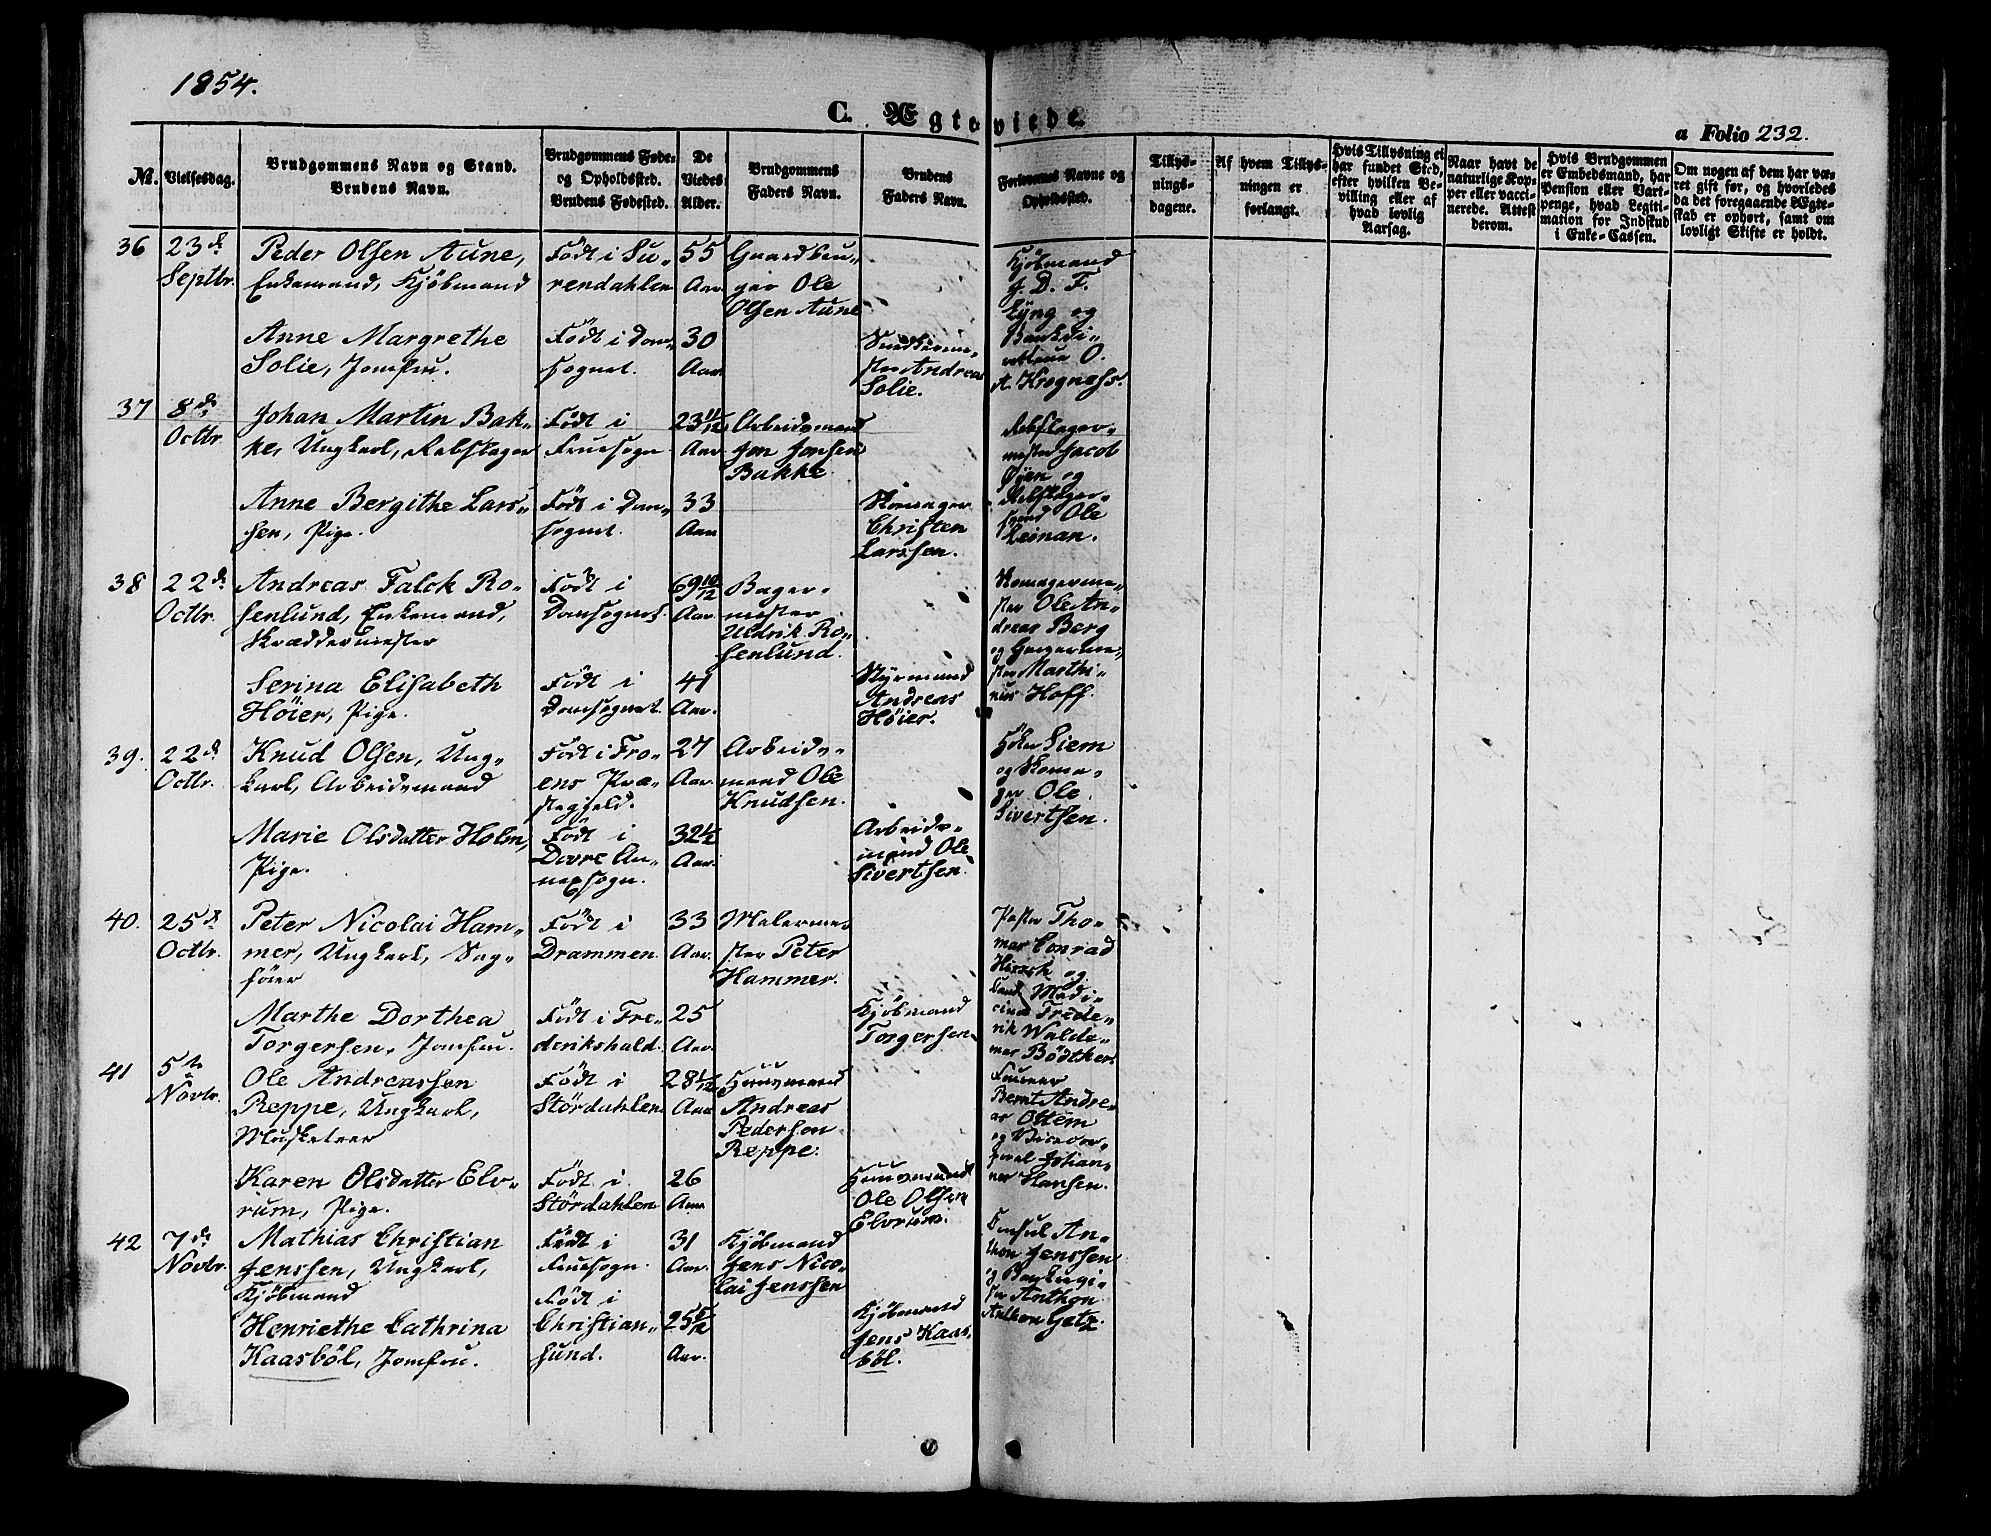 1854.
C. Ægteviede.
a Folio 232.
No.
Vielsesdag.
Brudgommens Navn og Stand.
Brudens Navn.
Brudgommens Føde-
og Opholdsted.
Brudens Fødested.
De
Viedes
Alder.
Brudgommens
Faders Navn.
Brudens
Faders Navn.
Forlovernes Navne og
Opholdsted.
Tillys-
nings-
dagene.
Af hvem Tillys-
ningen er
forlangt.
Hvis Tillysning ei
har fundet Sted,
efter hvilken Be-
villing eller af
hvad lovlig
Aarsag.
Naar havt de
naturlige Kop-
per eller vacci-
nerede. Attest
derom.
Hvis Brudgommen
er Embedsmand, har
Pension eller Vart-
penge, hvad Legiti-
mation for Indskud
i Enke-Cassen.
Om nogen af dem har væ-
ret gift før, og hvorledes
da det foregaaende Ægte-
skab er ophørt, samt om
lovligt Skifte er holdt.
36
23de
Septbr.
Peder Olsen Aune,
Enkemand, Kjøbmand
Født i Su-
rendahlen
55
Aar
Gaardbru-
ger Ole
Olsen Aune
Kjøbmand
J. D. F.
Lyng og
Bankdi-
A. Krogness.
Anne Margrethe
Solie, Jomfru.
Født i Dom-
sognet.
30
Aar
Andreas
Solie.
37
8de
Octbr.
Johan Martin Bak-
ke, Ungkarl, Rebslager
Født i
Fruesogn
23 11/12
Aar
Arbeidsmand
Jon Jonsen
Bakke
Rebslager-
mester Jacob
Øyen og
Rebslager-
svend Ole
Leinan.
Anne Bergithe Lars-
sen, Pige.
Født i Dom-
sognet.
33
Aar
Skomager
Christen
Larssen.
38
22de
Octbr.
Andreas Falck Ro-
senlund, Enkemand,
Skræddermester
Født i
Domsognet.
69 10/12
Aar
Bager-
mester
Uldrik Ro-
senlund.
Skomagerme-
ster Ole An-
dreas Berg
og
ster Marthi-
nus Hoff.
Serina Elisabeth
Høier, Pige.
Født i
Domsognet.
41
Aar.
Styrmand
Andreas
Høier.
39.
22de
Octbr.
Knud Olsen, Ung-
karl, Arbeidsmand
Født i Fro-
ens Præ-
stegjeld.
27
Aar.
Arbeids-
mand Ole
Knudsen.
Høker Siem
og Skoma-
ger Ole
Sivertsen.
Marie Olsdatter Holm,
Pige.
Født i
Dovre An-
nexsogn.
32 1/2
Aar.
Arbeids-
mand Ole
Sivertsen.
40.
25de
Octbr.
Peter Nicolai Ham-
mer, Ungkarl, Sag-
fører
Født i
Drammen
33
Aar.
Malerme-
ster Peter
Hammer.
Tho-
mas Conrad
Hirsch og
Cand. Medi-
cinæ Frede-
rik Walde-
mar Bödtker.
Marthe Dorthea
Torgersen, Jomfru.
Født i Fre-
derikshald.
25
Aar.
Kjøbmand
Torgersen
41
5te
Novbr.
Ole Andreassen
Reppe, Ungkarl,
Musketeer
Født i
Stördahlen
28 1/12
Aar
Huusmand
Andreas
Pedersen
Reppe.
Fourer
Bernt Andre-
as Ottem
og Vicecor-
poral Johan-
nes Hansen.
Karen Olsdatter Elv-
rum, Pige.
Født i
Stördahlen
26
Aar.
Huusmand
Ole Olsen
Elvrum.
42
7de
Novbr.
Mathias Christian
Jenssen, Ungkarl,
Kjøbmand
Født i
Fruesogn.
31
Aar.
Kjøbmand
Jens Nico-
lai Jenssen
Consul An-
thon Jenssen
og
Anthon
Anthon Getz
Henriethe Cathrina
Kaasböl, Jomfru.
Født i
Christian-
sund.
25 5/12
Aar.
Kjøbmand
Jens Kaas-
böl.